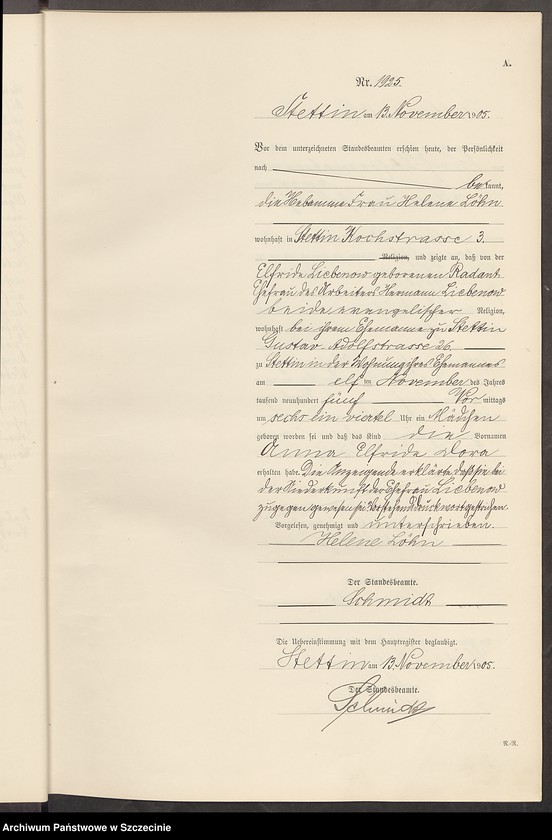 A.
Nr. 1925.
Stettin am 13. November 1905.
Vor dem unterzeichneten Standesbeamten erschien heute, der Persönlichkeit
nach
bekannt,
die Hebamme Frau Helene Löhn
wohnhaft in Stettin Kochstrasse 3.
Religion, und zeigte an, daß von der
Elfride Liebenow geborenen Radant
Ehefrau des Arbeiters Hermann Liebenow
beide evangelischer Religion,
wohnhaft bei ihrem Ehemanne zu Stettin
Gustav Adolfstrasse 26,
zu Stettin in der Wohnung ihres Ehemannes
am elf ten November des Jahres
tausend neunhundert fünf Vor mittags
um sechs ein viertel Uhr ein Mädchen
geboren worden sei und daß das Kind die Vornamen
Anna Elfride Dora
erhalten habe. Die Anzeigende erklärte, daß sie bei
der Niederkunft der Ehefrau Liebenow
zugegen gewesen sei. Vorstehend Druckwort gestrichen.
Vorgelesen, genehmigt und unterschrieben.
Helene Löhn
Der Standesbeamte.
Schmidt
Die Uebereinstimmung mit dem Hauptregister beglaubigt.
Stettin am 13. November 1905.
Der Standesbeamte.
Schmidt
N.-R.
Archiwum Państwowe w Szczecinie